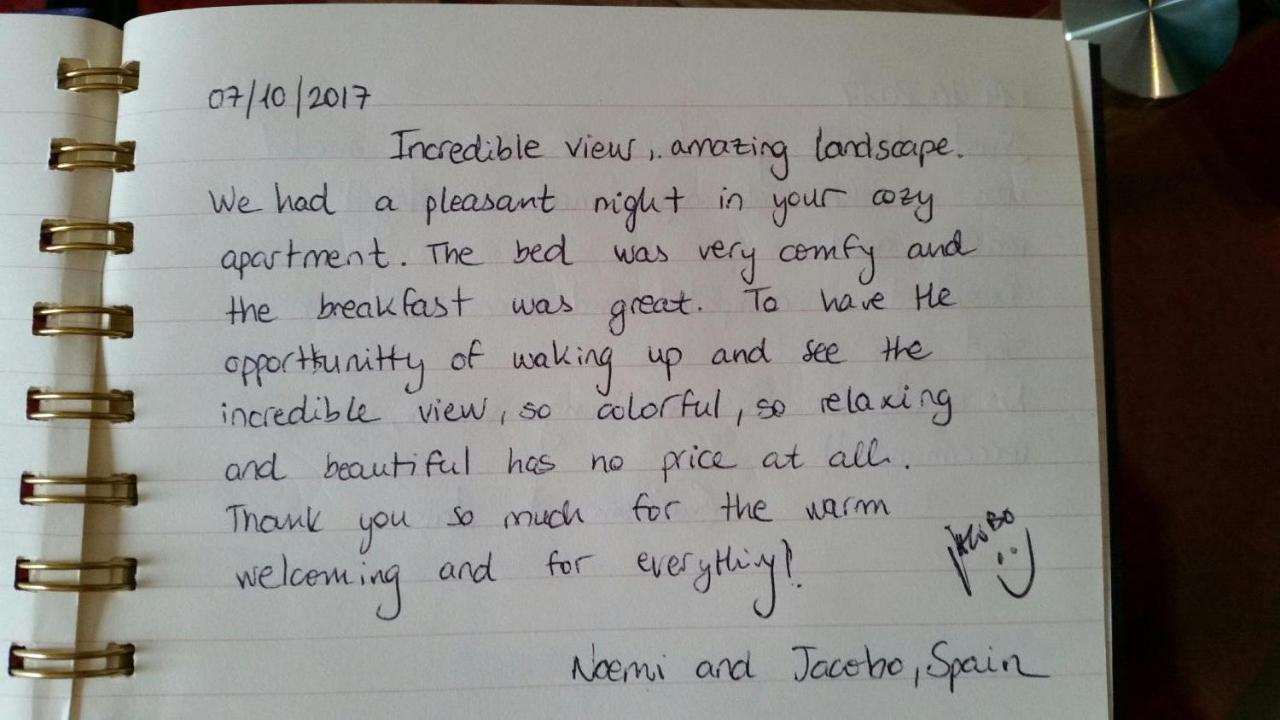 07/10/2017
Incredible view, amazing landscape.
We had a pleasant night in your cozy
apartment. The bed was very comfy and
the breakfast was great. To have the
opporttunitty of waking up and see the
incredible view, so colorful, so relaxing
and beautiful has no price at all.
Thank you so much for the warm
welcoming and for everything!
JACOBO
:)
Noemi and Jacobo, Spain